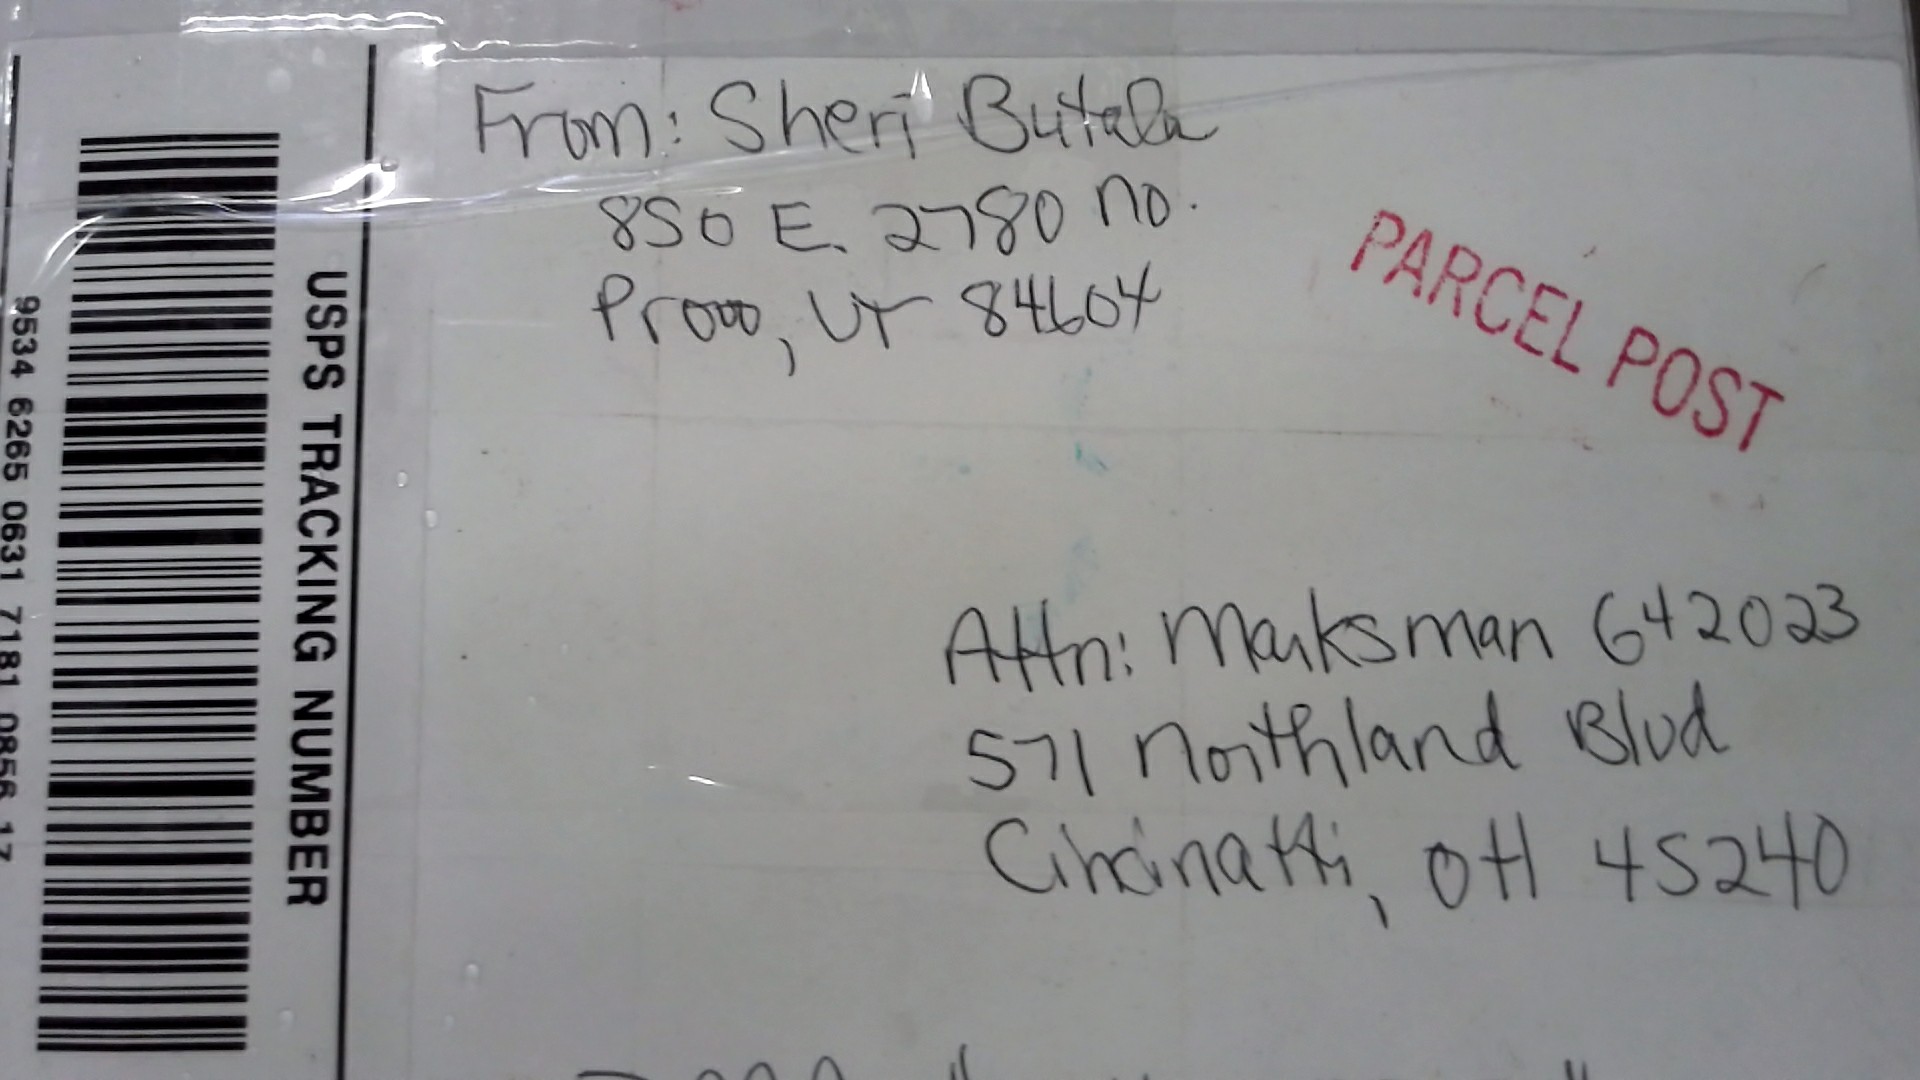 From: Sheri Butala
850 E. 2780 no.
Provo, UT 84604
PARCEL POST
Attn: Marksman 642023
571 Northland Blvd
Cincinatti, OH 45240
USPS TRACKING NUMBER
9534 6265 0631 7181 0856 17